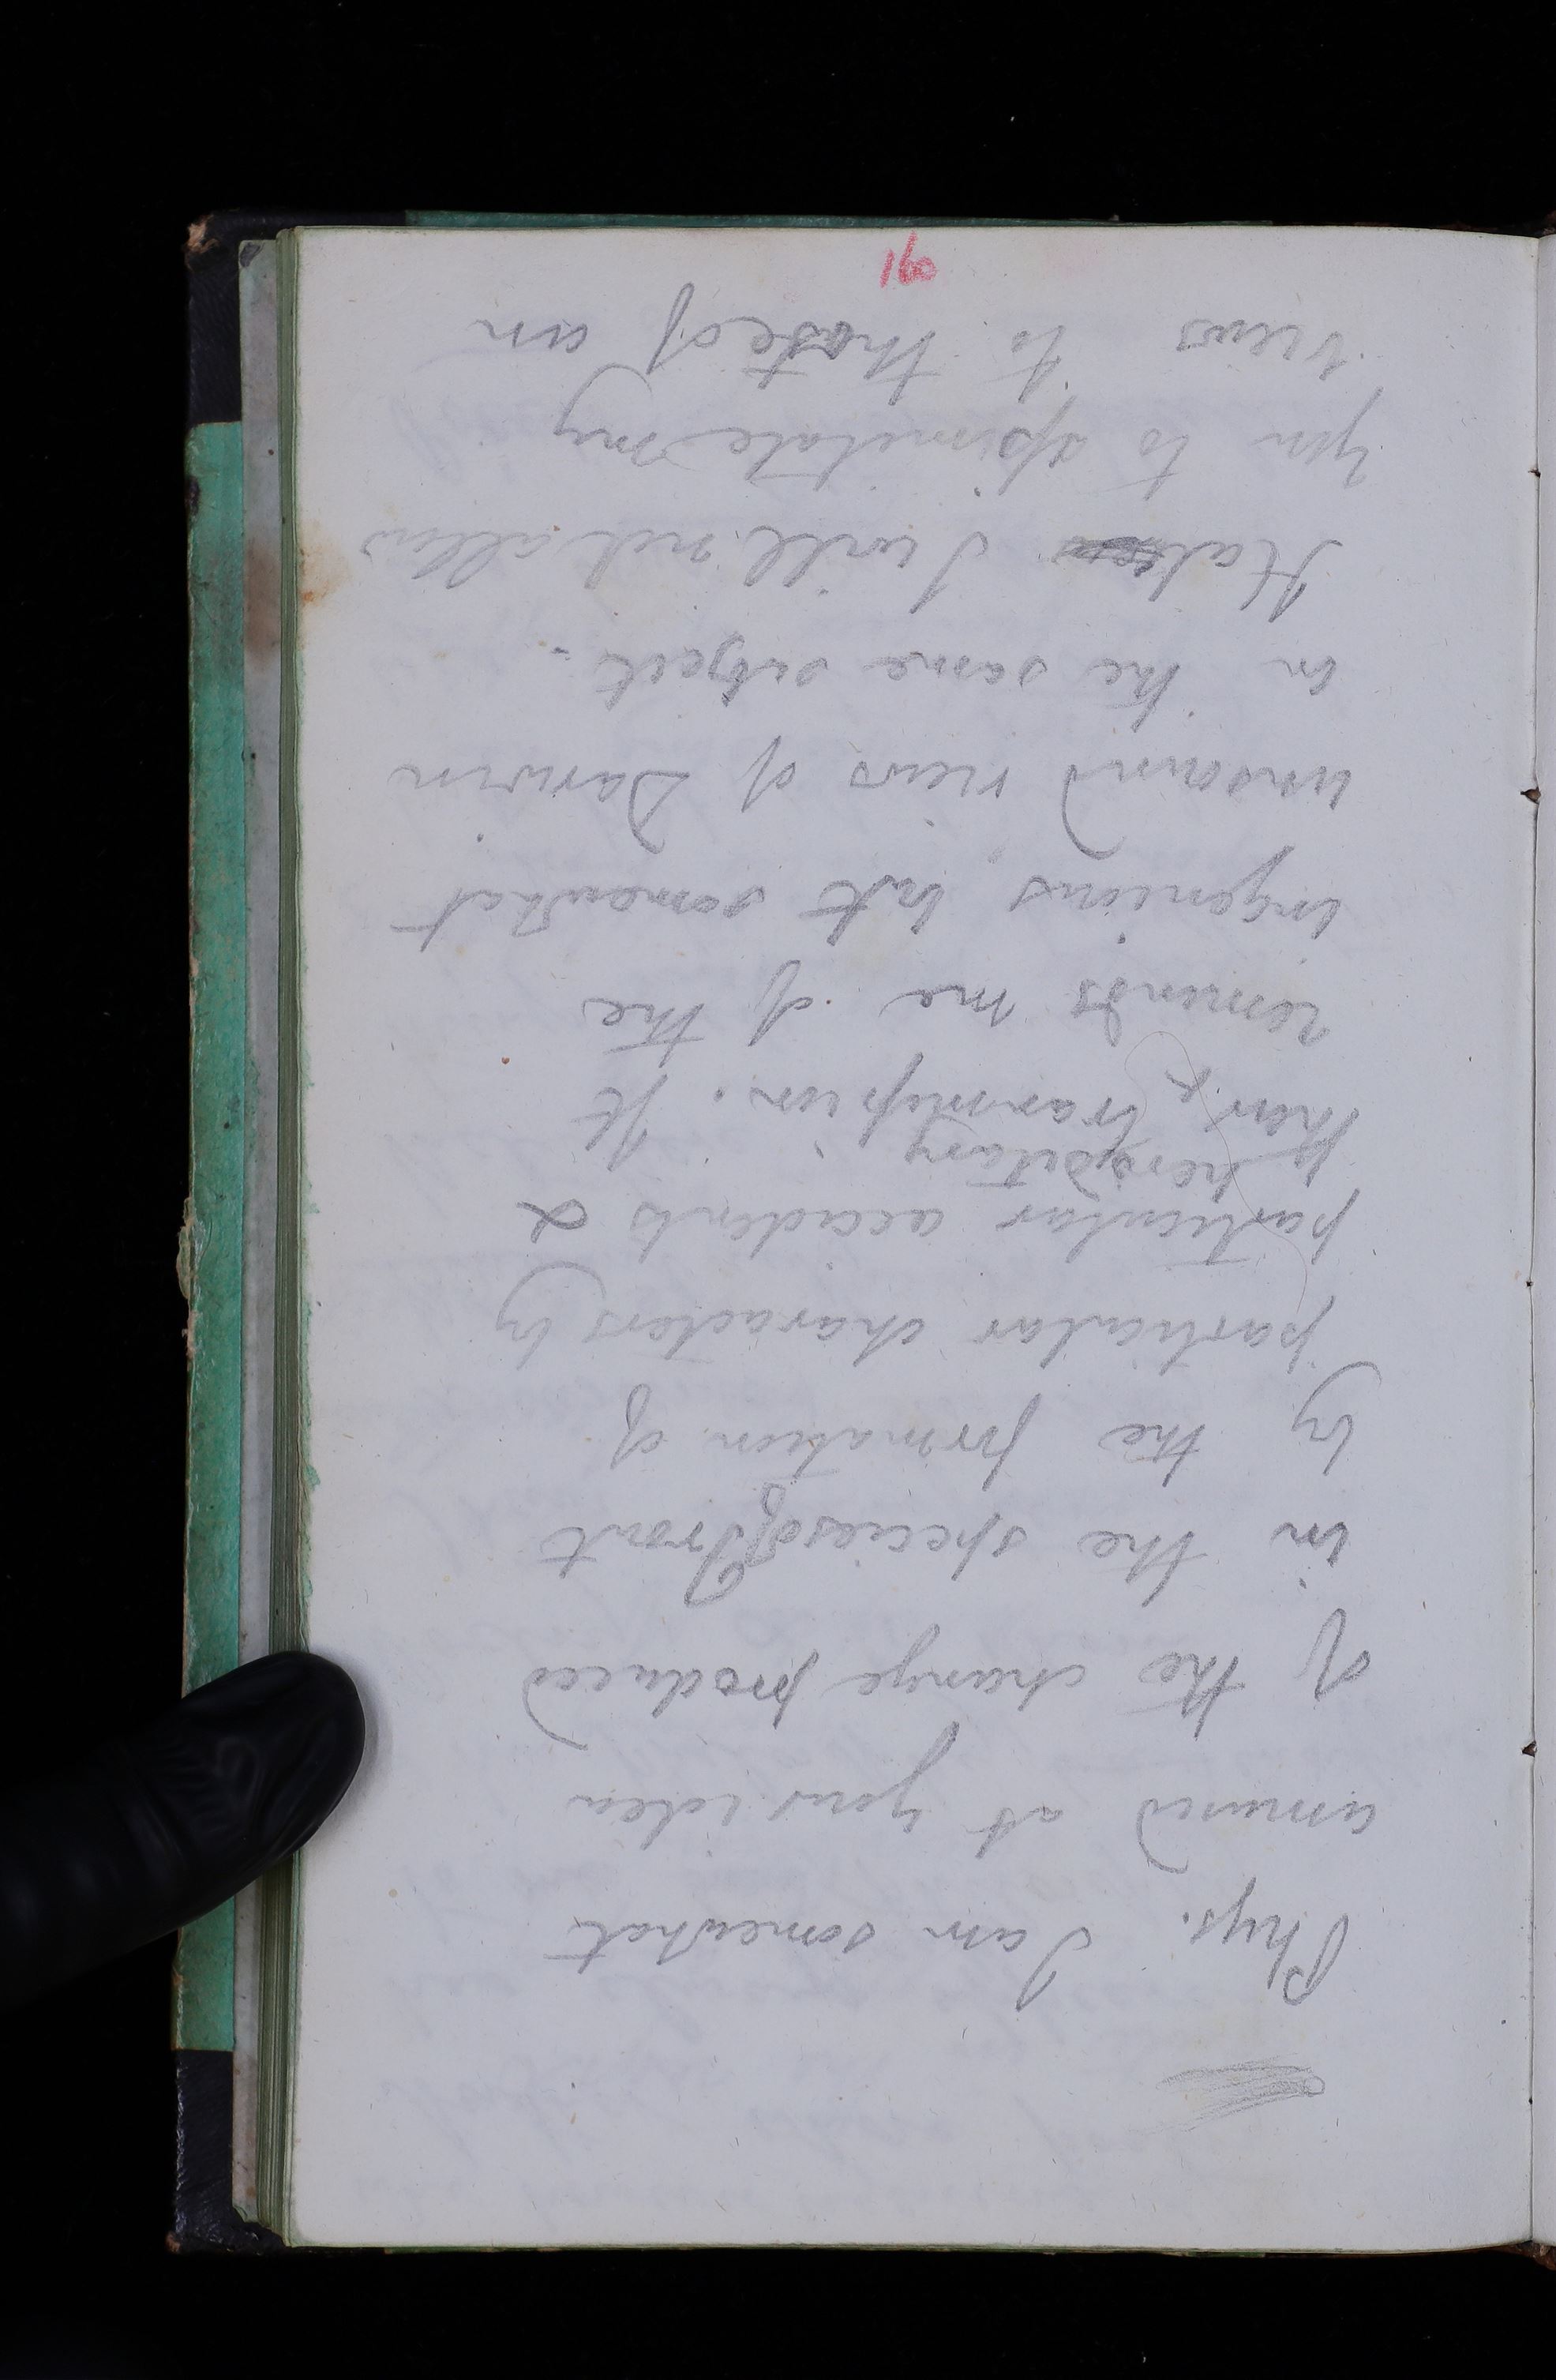 Phys. I am somewhat
amused at your idea
of the change produced
in the species of Trout
by the formation of
particular characters by
particular accidents &
hereditary
their transmission. It
reminds me of the
ingenious but somewhat
unsound views of Darwin
on the same subject. -
Hal I will not allow
you to assimilate my
views to those of an
160